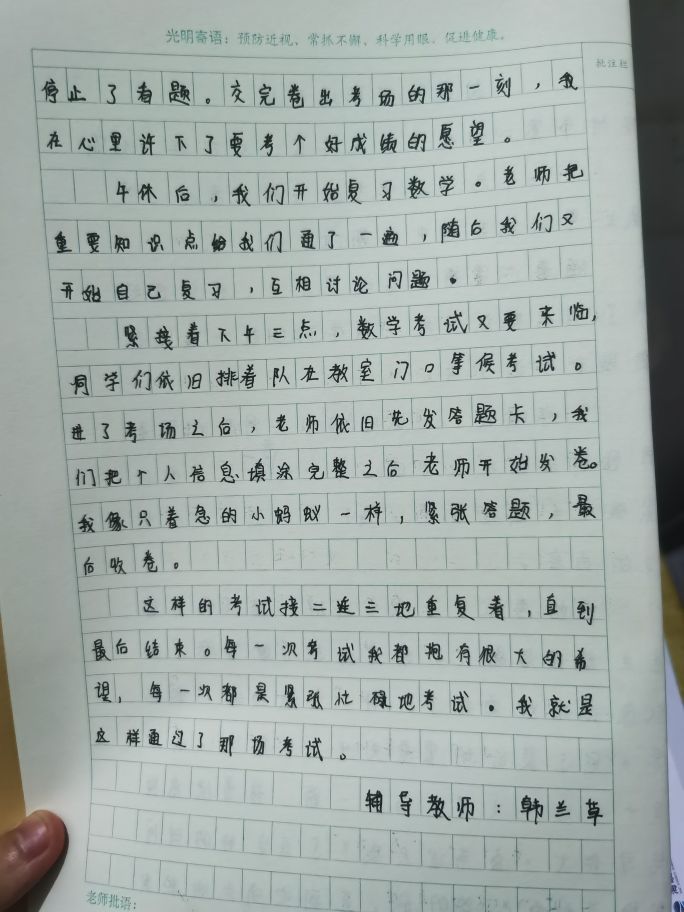 光明寄语：预防近视、常抓不懈、科学用眼、促进健康。
批注栏
停止了看题。交完卷出考场的那一刻，我
在心里许下了要考个好成绩的愿望。
午休后，我们开始复习数学。老师把
重要知识点给我们通了一遍，随后我们又
开始自己复习，互相讨论问题。
紧接着下午三点，数学考试又要来临，
同学们依旧排着队在教室门口等候考试。
进了考场之后，老师依旧先发答题卡，我
们把个人信息填涂完整之后老师开始发卷。
我像只着急的小蚂蚁一样，紧张答题，最
后收卷。
这样的考试接二连三地重复着，直到
最后结束。每一次考试我都抱有很大的希
望，每一次都是紧张忙碌地考试。我就是
这样通过了那场考试。
辅导教师：韩兰草
老师批语：